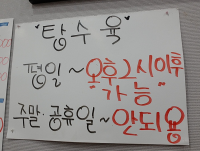 "탕수육"
평일~오후2시이후
가능
주말.공휴일~안되용